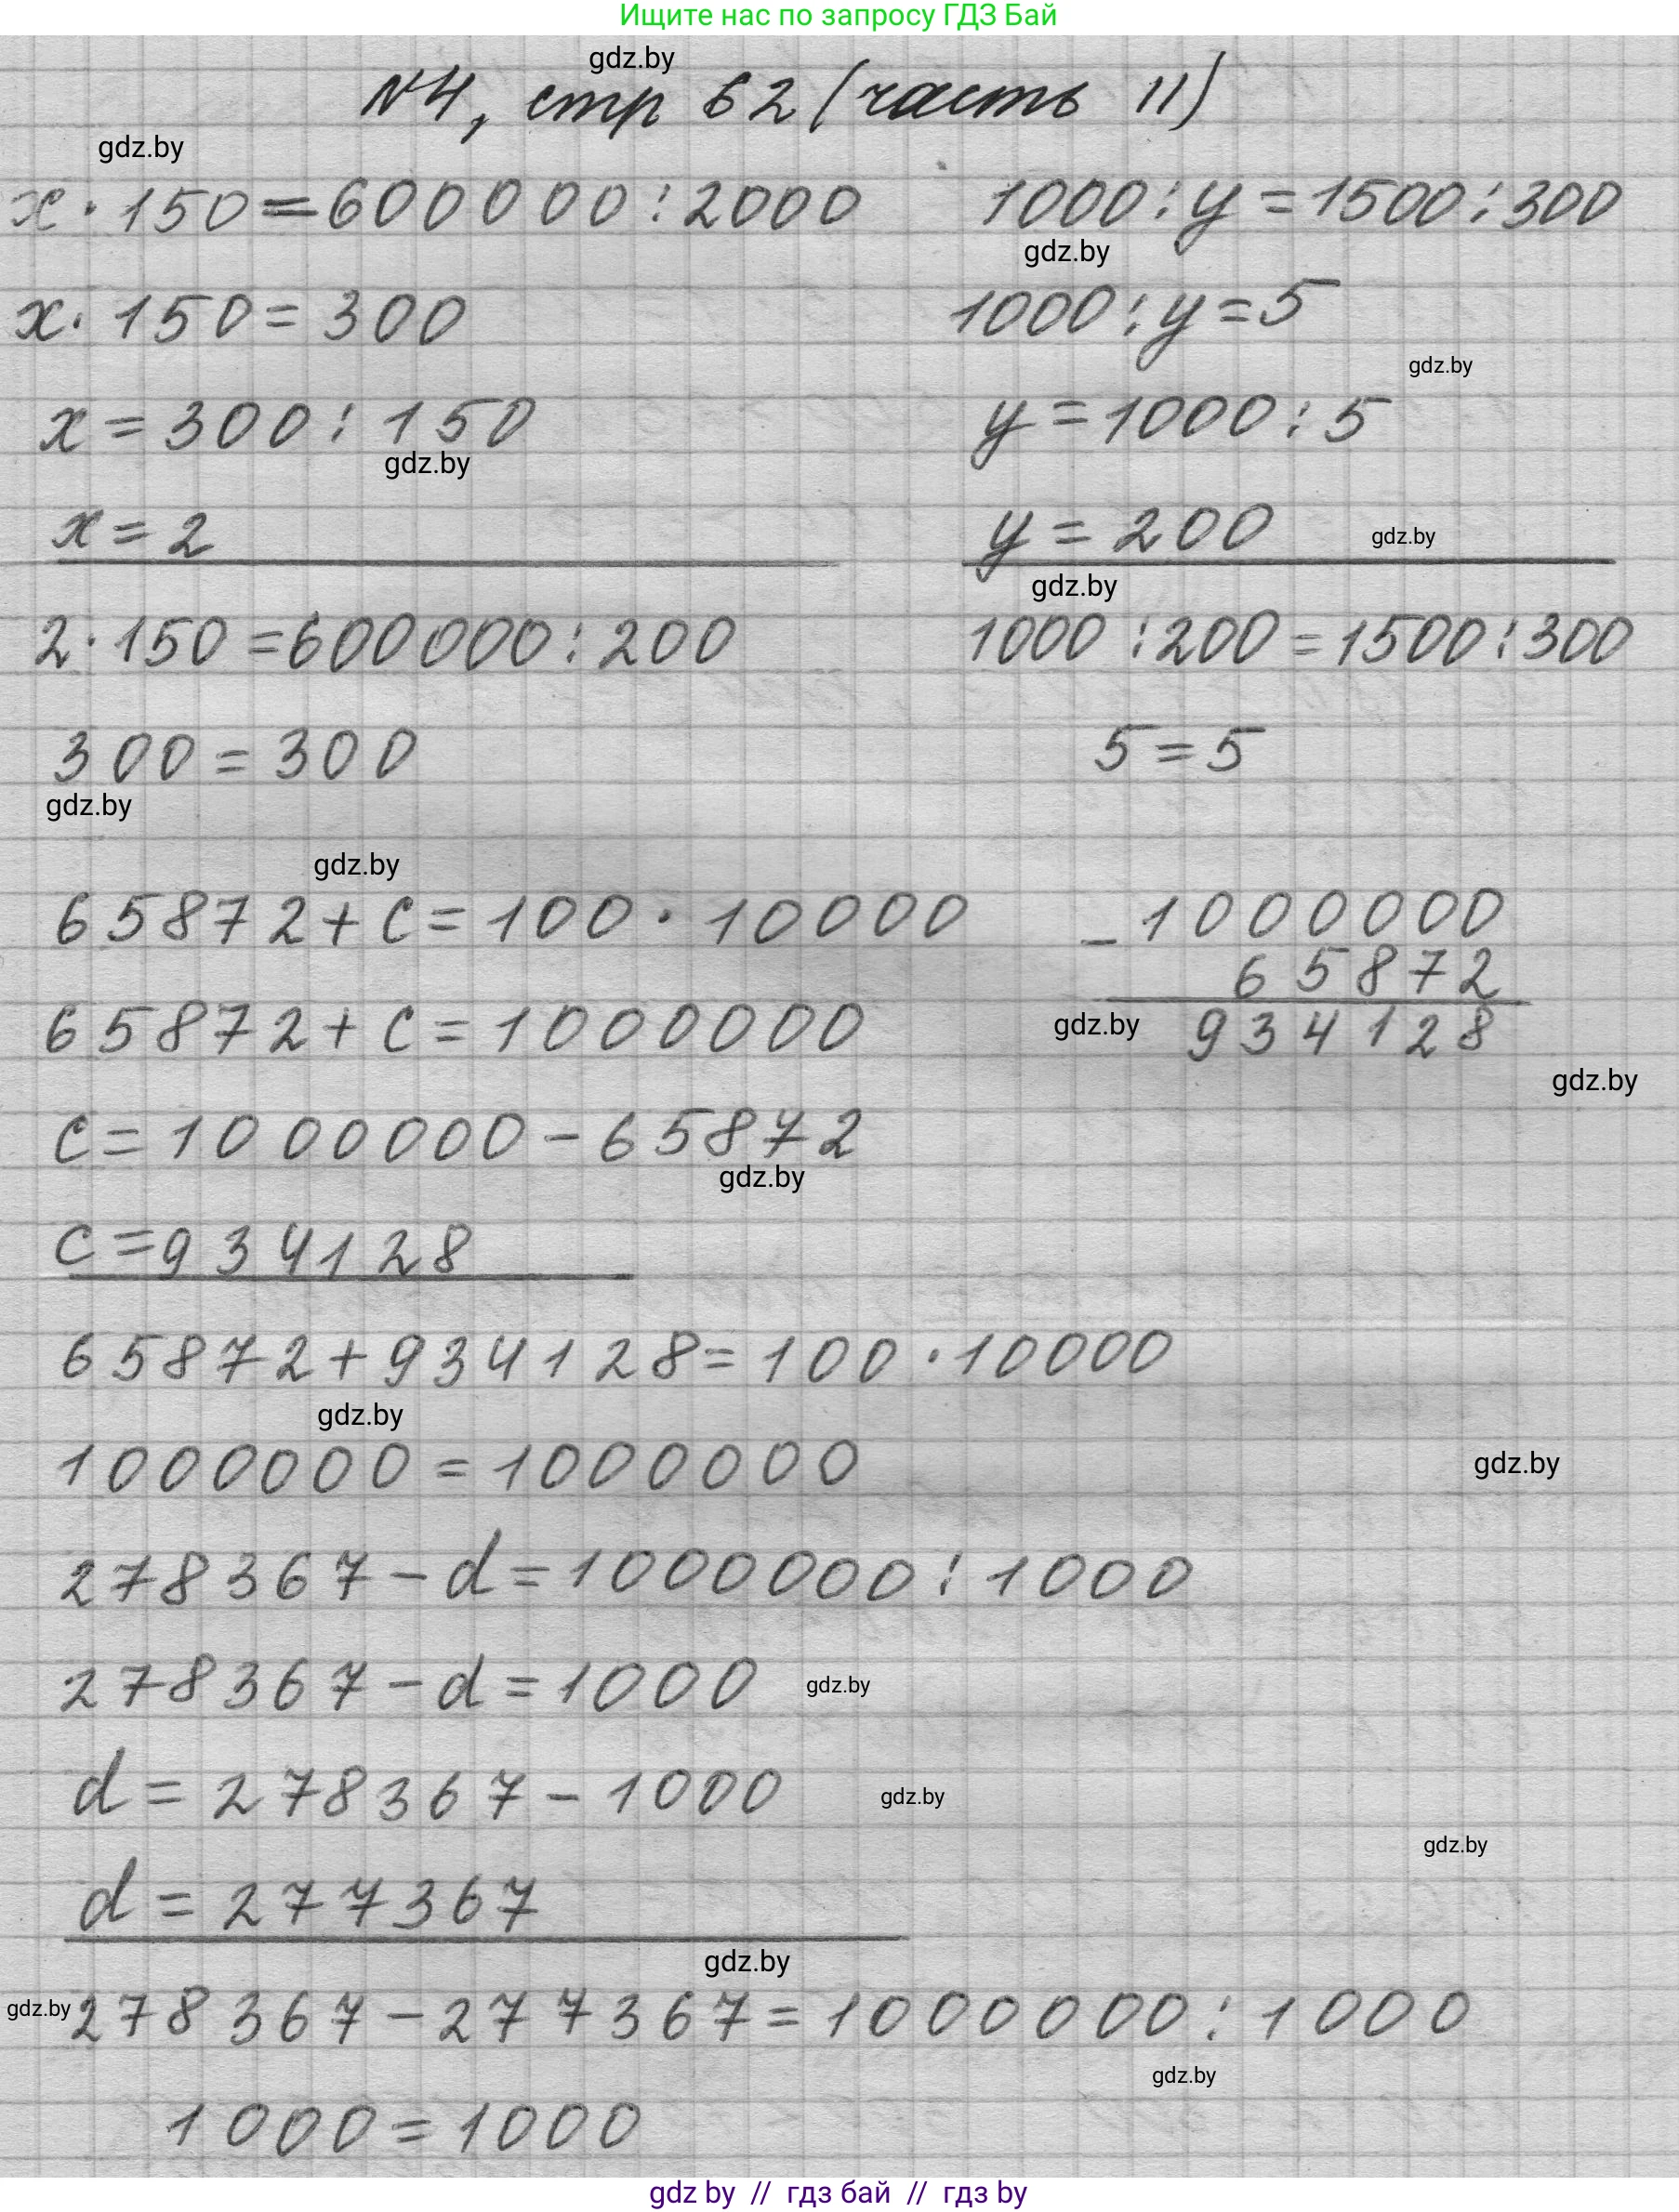 Ищите нас по запросу ГДЗ Бай
gdz.by
№4, стр 62 (часть II)
gdz.by
x · 150 = 600000 : 2000
1000 : y = 1500 : 300
gdz.by
x · 150 = 300
1000 : y = 5
gdz.by
x = 300 : 150
y = 1000 : 5
gdz.by
x = 2
y = 200
gdz.by
gdz.by
2 · 150 = 600000 : 200
1000 : 200 = 1500 : 300
300 = 300
5 = 5
gdz.by
gdz.by
65872 + c = 100 · 10000
- 1000000
65872
934128
65872 + c = 1000000
gdz.by
gdz.by
c = 1000000 - 65872
gdz.by
c = 934128
65872 + 934128 = 100 · 10000
gdz.by
1000000 = 1000000
gdz.by
278367 - d = 1000000 : 1000
278367 - d = 1000
gdz.by
d = 278367 - 1000
gdz.by
gdz.by
d = 277367
gdz.by
gdz.by
278367 - 277367 = 1000000 : 1000
gdz.by
1000 = 1000
gdz by // гдз бай // гдз by